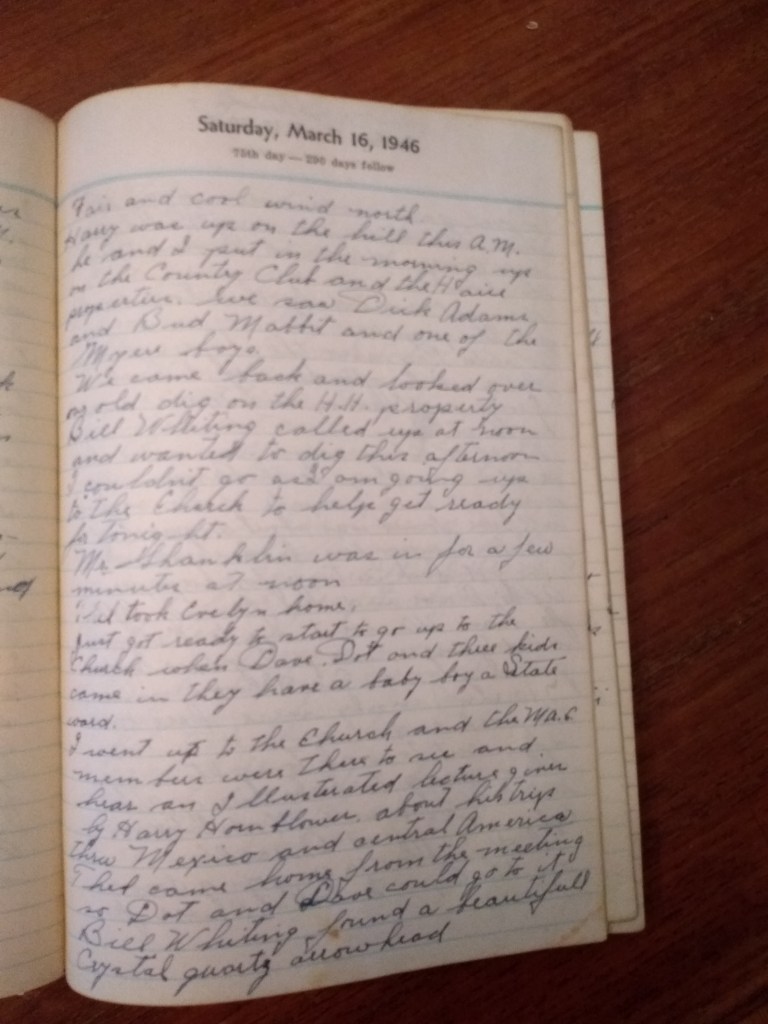 Saturday, March 16, 1946
75th day — 290 days follow
Fair and cool wind north.
Harry was up on the hill this A.M.
he and I put in the morning up
on the Country Club and the
properties. we saw Dick Adams
and Bud Mabbit and one of the
Myere boys.
We came back and looked over
old dig on the H.H. property
Bill Whiting called up at noon
and wanted to dig this afternoon
I couldn't go as I am going up
to the Church to help get ready
for tonight.
Mr Shanklin was in for a few
minutes at noon
took Evelyn home.
Just got ready to start to go up to the
Church when Dave, Dot and three kids
came in they have a baby boy a State
ward.
I went up to the Church and the M.A.S
members were there to see and
hear an Illustrated lecture given
by Harry Hornblower. about his trips
thru Mexico and central America
Thel came home from the meeting
so Dot and Dave could go to it
Bill Whiting found a beautifull
Crystal quartz arrowhead